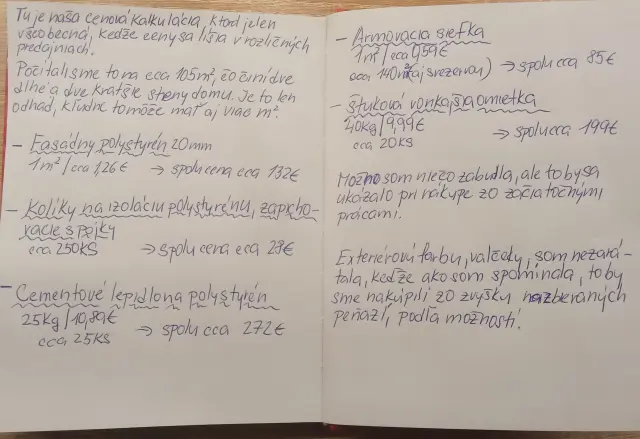 Tu je naša cenová kalkulácia, ktorá je len
všeobecná, keďže ceny sa líšia v rozličných
predajniach.
Počítali sme to na cca 105m², čo činí dve
dlhé a dve kratšie steny domu. Je to len
odhad, kľudne to môže mať aj viac m².
- Fasádny polystyrén 20mm
1m² / cca 1,26€ → spolu cena cca 132€
- Kolíky na izoláciu polystyrénu, zaprcho-
vacie spojky
cca 250KS → spolu cena cca 28€
- Cementové lepidlo na polystyrén
25kg / 10,89€ → spolu cca 272€
cca 25KS
- Armovacia sieťka
1m² / cca 0,59€ → spolu cca 85€
cca 140m² (aj s rezervou)
- Štuková vonkajšia omietka
40kg / 9,99€ → spolu cca 199€
cca 20KS
Možno som niečo zabudla, ale to by sa
ukázalo pri nákupe zo začiatočnými
prácami.
Exteriérovú farbu, valčeky, som nezará-
tala, keďže ako som spomínala, to by
sme nakúpili zo zvyšku nazberaných
peňazí, podľa možností!